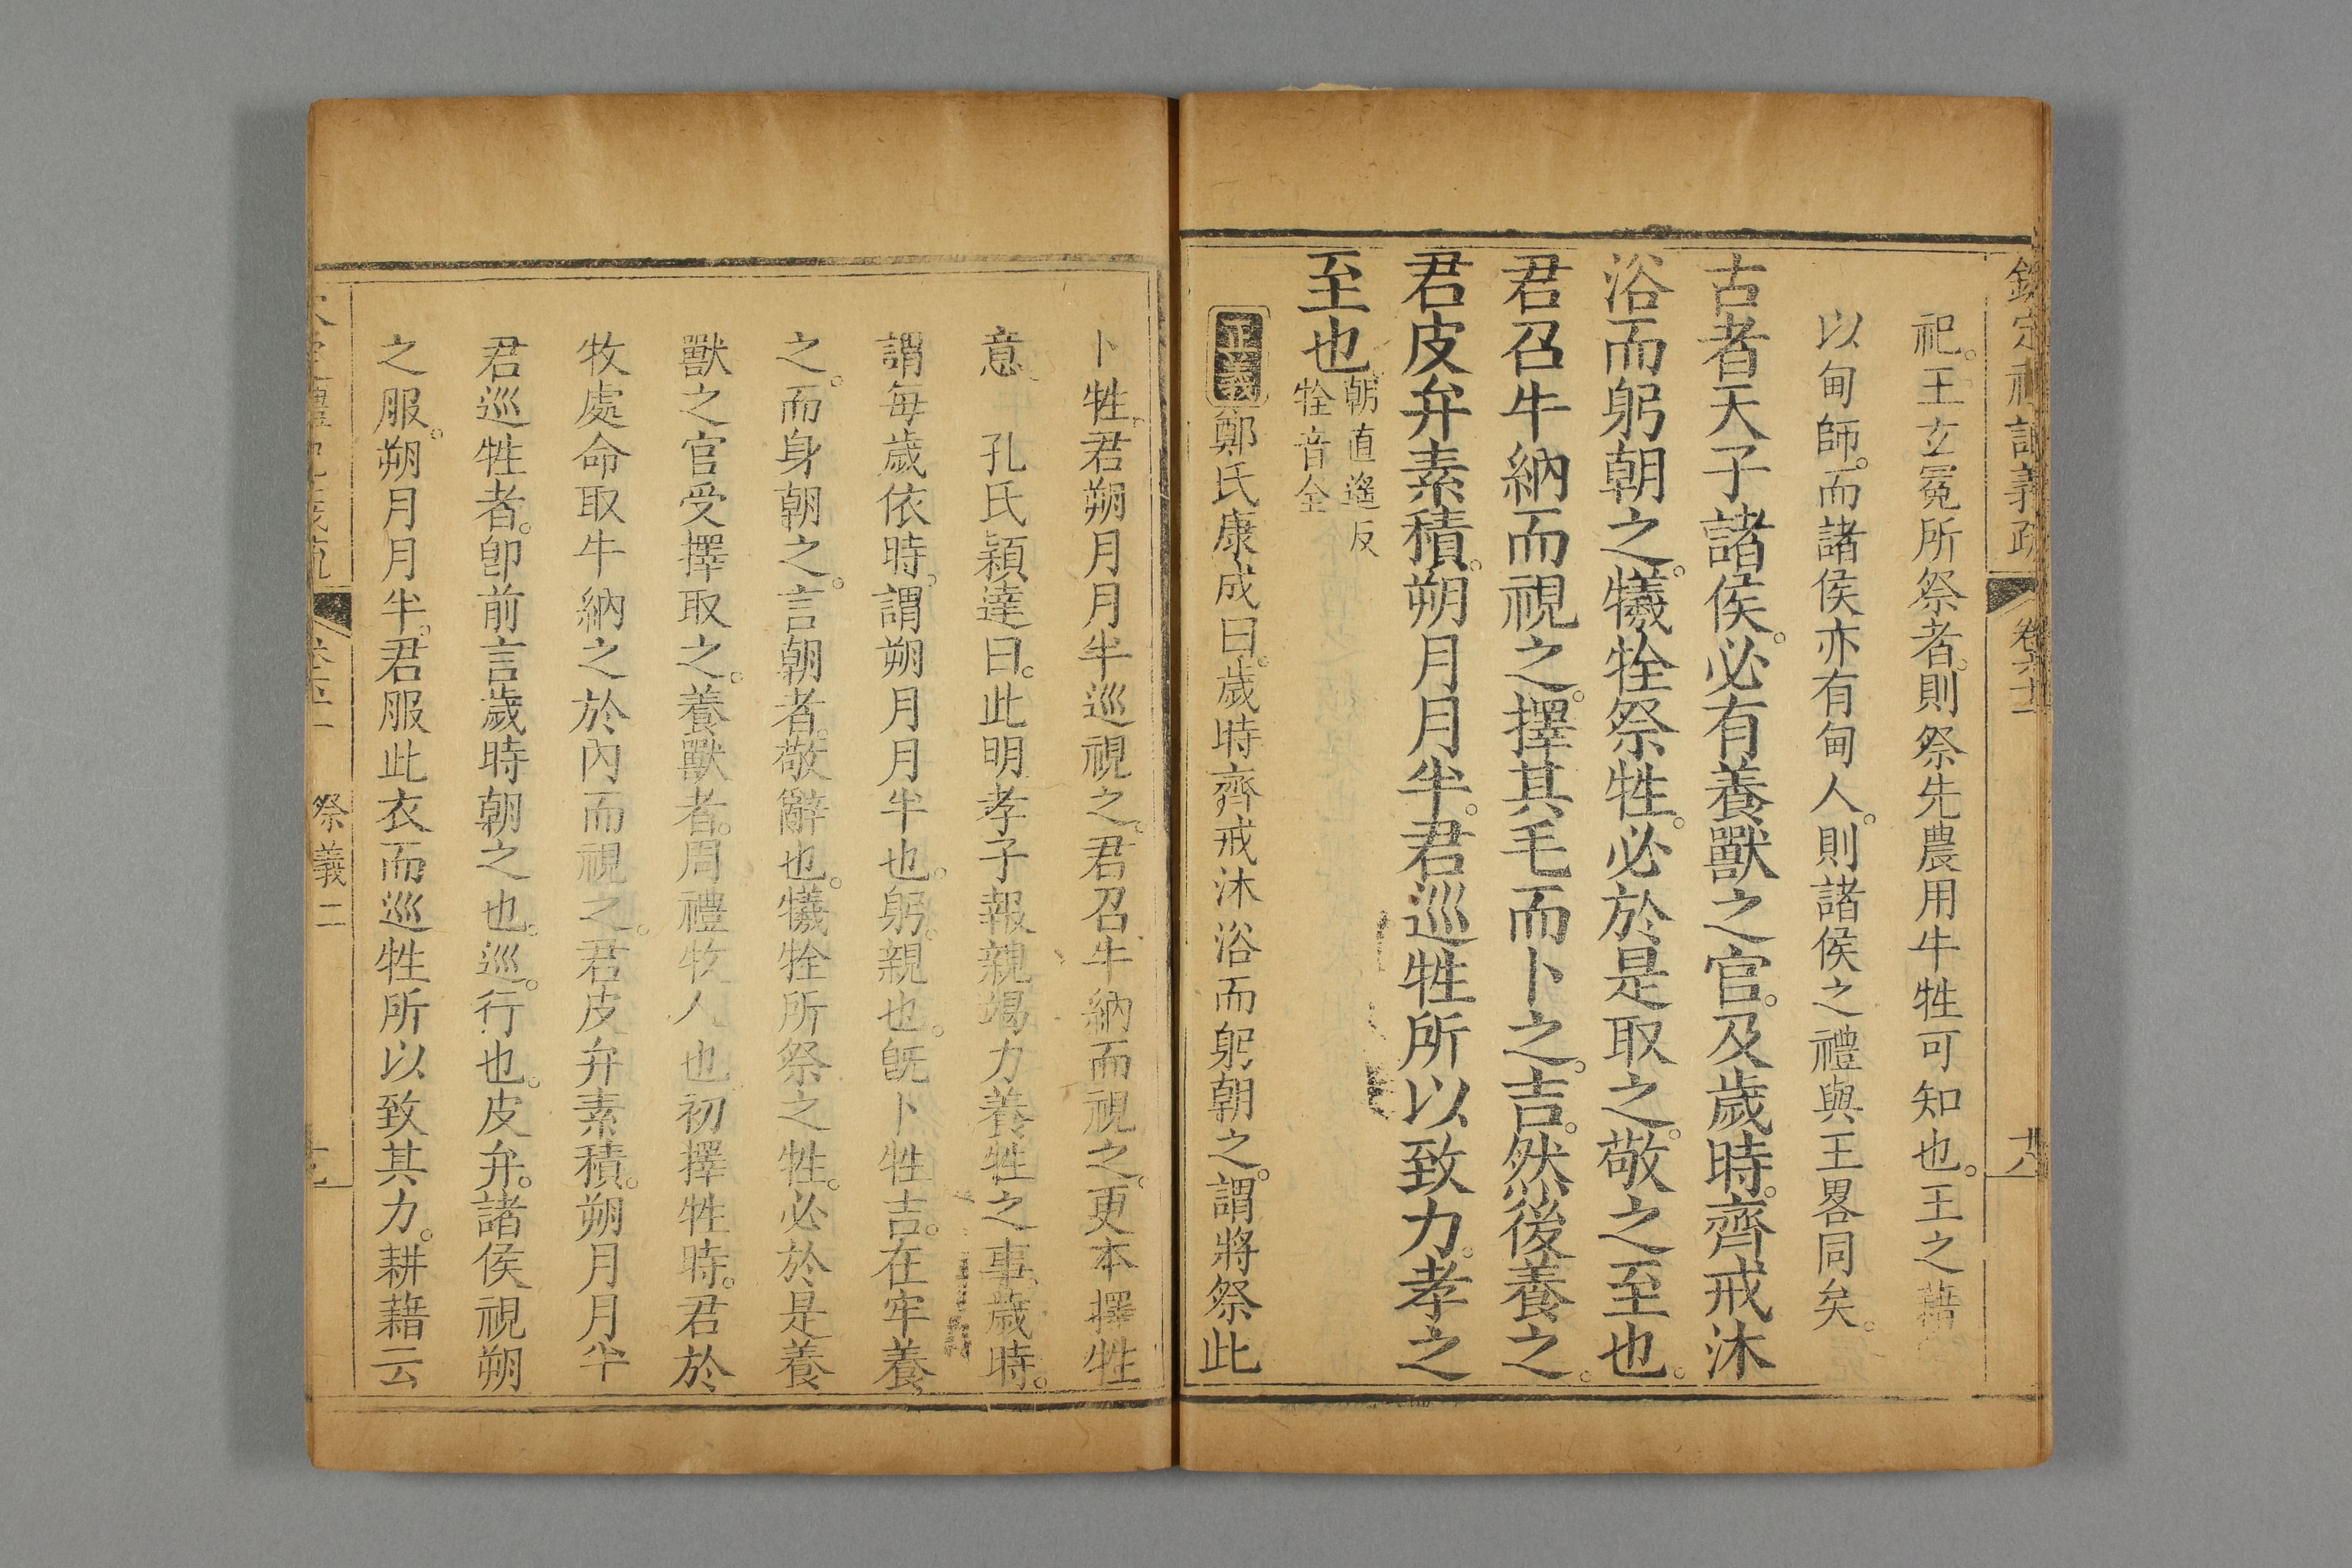 欽定禮記義疏 卷六十二 十八
祀。王玄冕所祭者。則祭先農用牛牲可知也。王之藉
以甸師。而諸侯亦有甸人。則諸侯之禮與王畧同矣。
古者天子諸侯。必有養獸之官。及歲時。齊戒沐
浴而躬朝之。犧牷祭牲。必於是取之。敬之至也。
君召牛納而視之。擇其毛而卜之。吉。然後養之。
君皮弁素積。朔月月半。君巡牲所以致力。孝之
至也。朝直遙反
牷音全
正義鄭氏康成曰。歲時齊戒沐浴而躬朝之。謂將祭此
卜牲。君朔月月半巡視之。君召牛納而視之。更本擇牲
意 孔氏穎達曰。此明孝子報親竭力養牲之事。歲時。
謂每歲依時。謂朔月月半也。躬。親也。旣卜牲吉。在牢養
之。而身朝之。言朝者。敬辭也。犧牷所祭之牲。必於是養
獸之官受擇取之。養獸者。周禮牧人也。初擇牲時。君於
牧處命取牛納之於內而視之。君皮弁素積。朔月月半
君巡牲者。卽前言歲時朝之也。巡。行也。皮弁。諸侯視朔
之服。朔月月半。君服此衣而巡牲所以致其力。耕藉云
祭義二